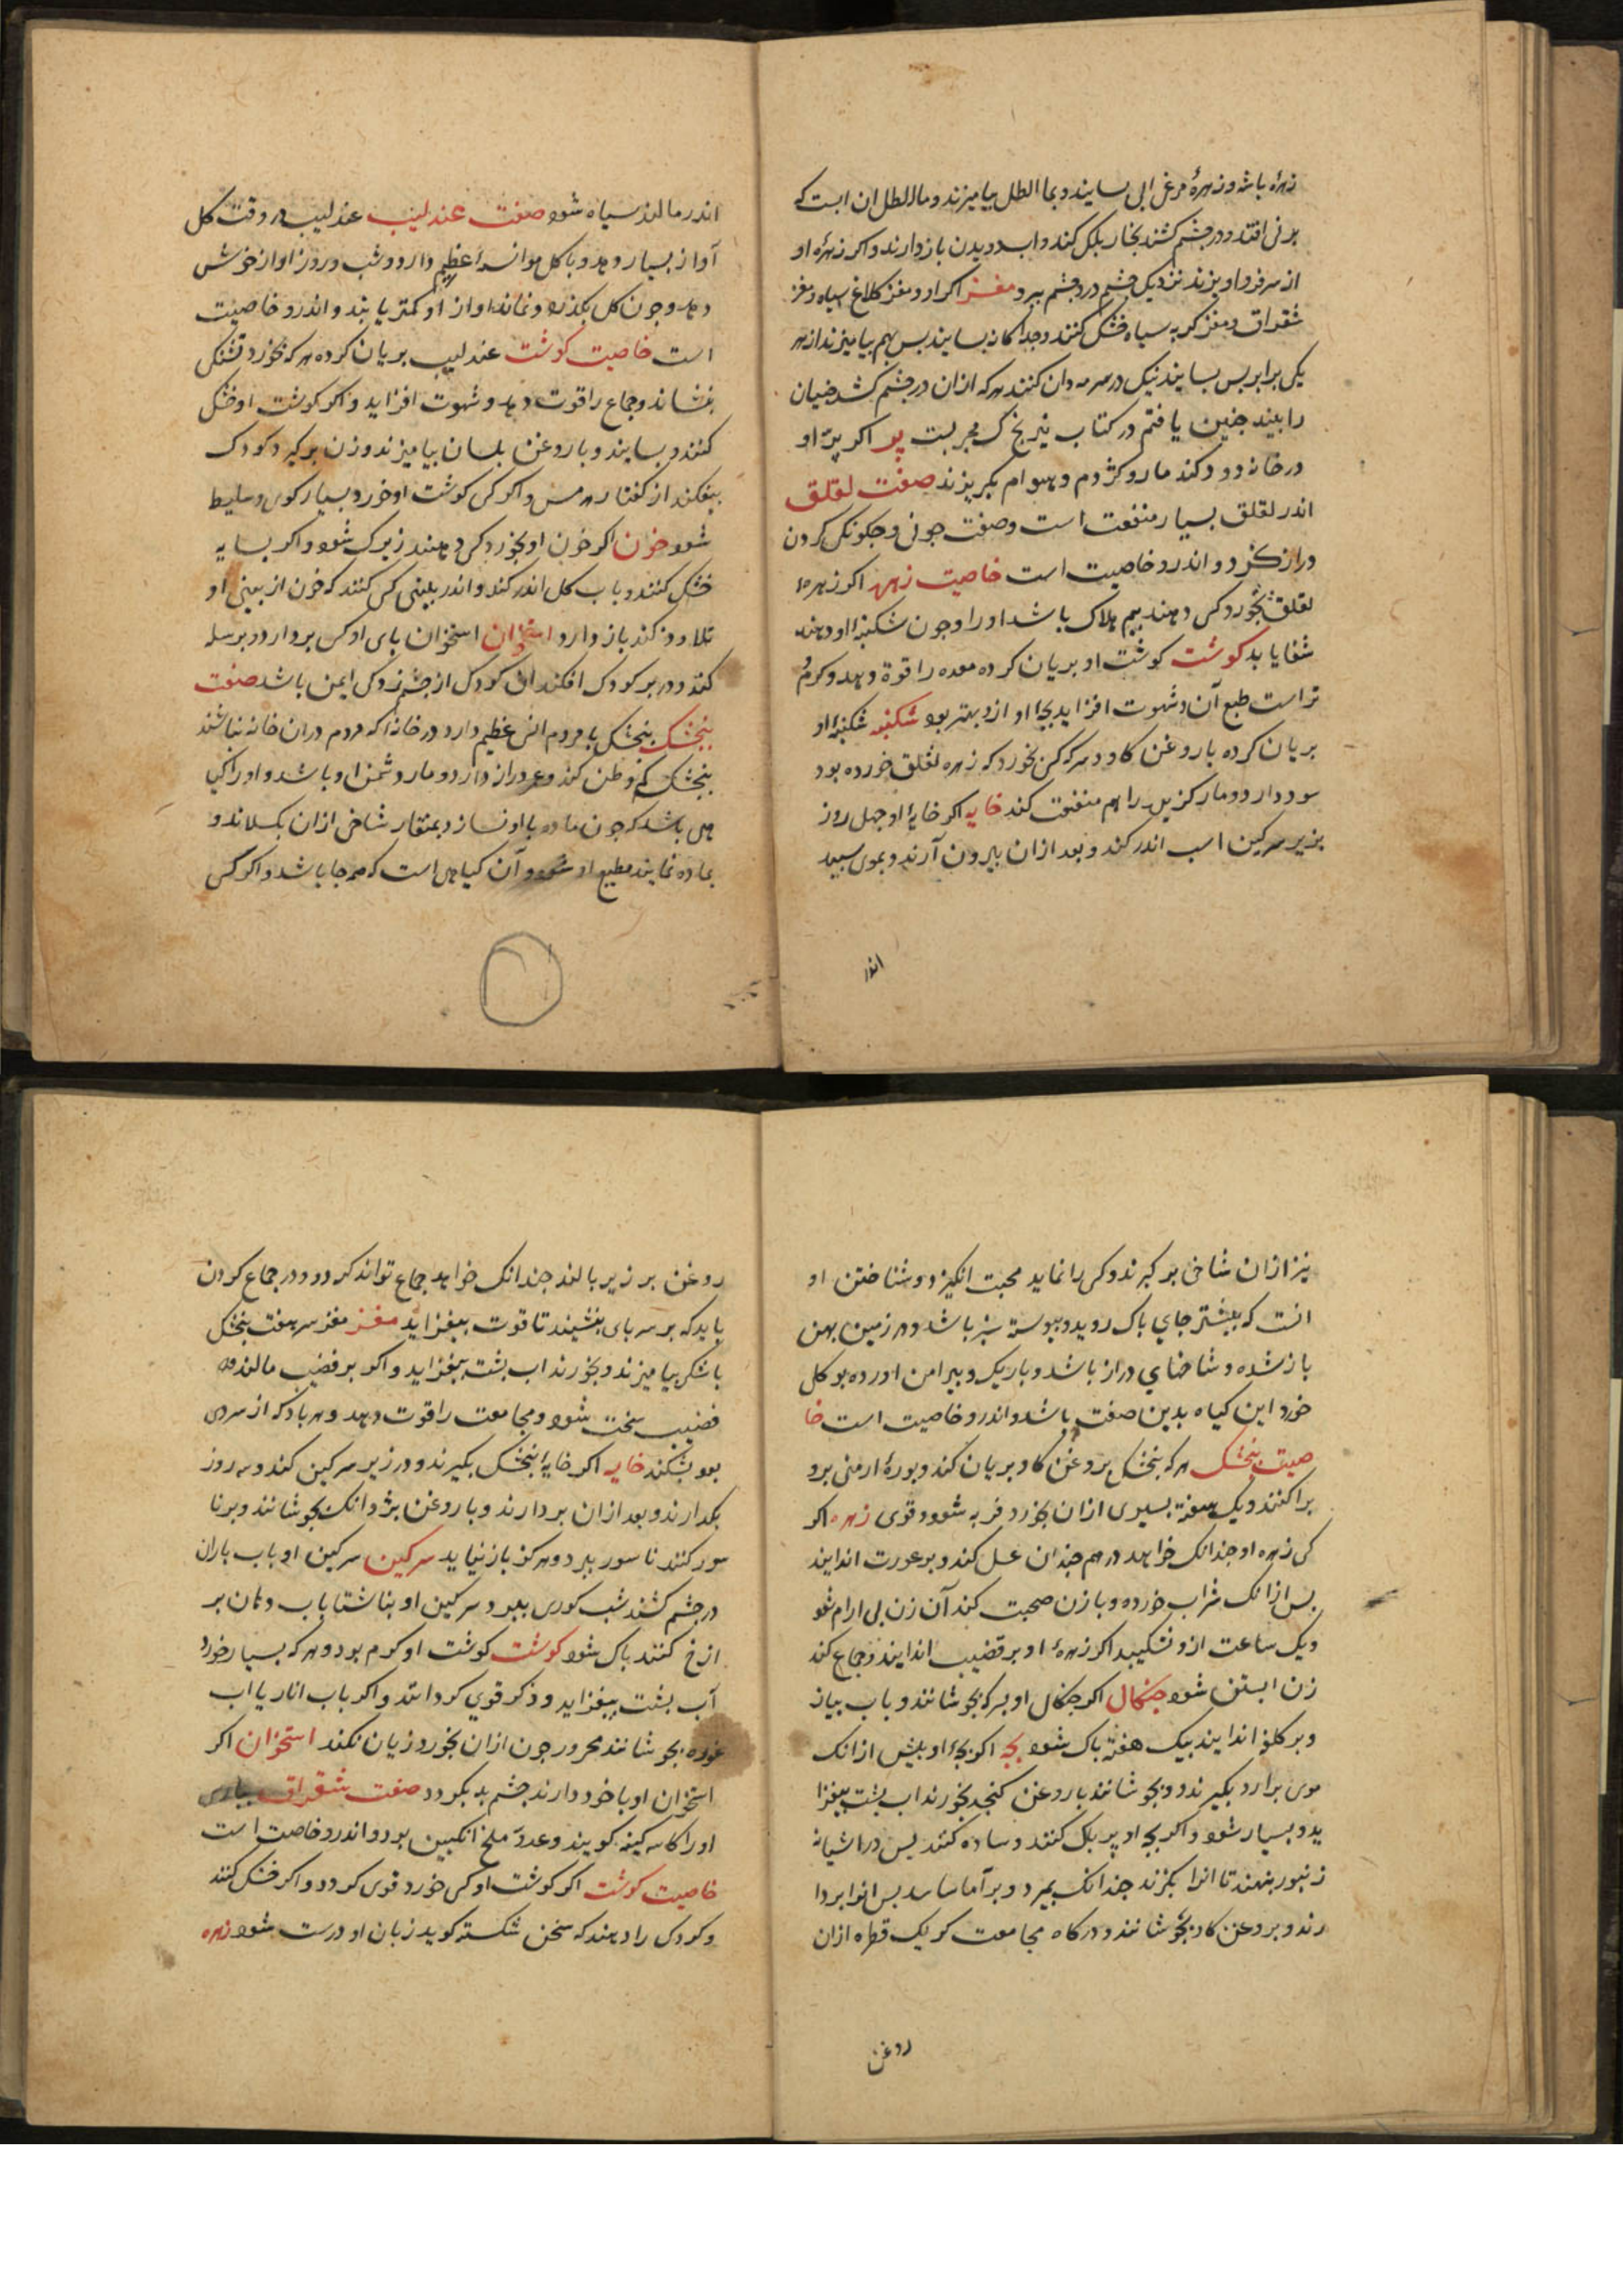 زهرهٔ باشه و زهرهٔ مرغ ابی بسایند و بما الطل بیامیزند و ما الطل ان ابست که
بر نی افتد و در چشم کشند بخار بلکل کند و اب دویدن باز دارند و اکر زهرهٔ او
از سر فرو اویزند نزدیک چشم درد چشم ببرد مغز اکر او و مغز کلاغ سیاه و مغز
شقراق و مغز کربه سیاه خشک کنند و جدا کانه بسایند بس بهم بیامیزند از هر
یکی برابر بس بسایند نیک در سرمه دان کنند هر که ازان در چشم کشد ضیان
را بیند جنین یافتم در کتاب نیرنج ک مجربست پر اکر پر او
در خانه دود کند مار و کژدم و هوام بکریزند صفت لقلق
اندر لقلق بسیار منفعت است و صفت جونی و جکونکی کردن
دراز کفرد و اندرو خاصیت است خاصیت زهره اکر زهرهٔ
لقلق بخورد کسی دهند بیم هلاک باشد او را وجون شکنبهٔ او دهند
شفا یابد کوشت کوشت او بریان کرده معده را قوة دهد و کرم و
تر است طبع آن و شهوت افزاید بجهٔ او ازو بهتر بود شکنبه شکنبهٔ او
بریان کرده با روغن کاو و سرکه کسی بخورد که زهره لقلق خورده بود
سود دارد و مار کزیده را هم منفعت کند خایه اکر خایهٔ او جهل روز
بزیر سرکین اسب اندر کند و بعد ازان بیرون آرند و بموی سپید
اندر
اندر مالند سیاه شود صفت عندلیب عندلیب در وقت کل
آواز بسیار دهد و با کل موانسهٔ عظیم دارد و شب و روز اواز خوش
دهد وجون کل بکذرد و نماند اواز او کمتر یابند و اندرو خاصیت
است خاصیت کوشت عندلیب بریان کرده هر که بخورد تشنکی
بنشاند و جماع را قوت دهد و شهوت افزاید و اکر کوشت او خشک
کنند و بسایند و با روغن بلسان بیامیزند و زن برکیرد کودک
بیفکند از کفتار هرمس و اکر کسی کوشت او خورد بسیار کوی و سلیط
شود خون اکر خون او بخورد کسی دهند زیرک شود و اکر بسایه
خشک کنند و باب کل اندر کند و اندر بینی کسی کنند که خون از بینی او
تلا وز کند باز دارد استخوان استخوان پای او کس بردارد و در بر سله
کند و در بر کودک افکند ان کودک از چشم زدکی ایمن باشد صفت
بنجشک بنجشک با مردم انس عظیم دارد در خانهٔ که مردم دران خانه نباشند
بنجشک کم وطن کند و عمر دراز دارد و مار دشمن او باشد و او را کیا
هی باشد که جون ماده با او نسازد بمنقار شاخی ازان بکسلاند و
بماده نماید مطیع او شود و آن کیاهی است که همه جا باشد و اکر کسی
نیز ازان شاخی برکیرند و کسی را نماید محبت انکیزد و شناختن او
انست که بیشتر جای پاک روید و پیوسته سبز باشد و در زمین پهن
باز شده و شاخهای دراز باشد و باریک و پیرامن اورده بو کل
خورد این کیاه بدین صفت باشد و اندرو خاصیت است خا
صیت بنجشک هر که بنجشک بروغن کاو بریان کند و بورهٔ ارمنی برو
براکنند و یک هفته بسیری ازان بخورد فربه شود و قوی زهره اکر
کسی زهره او جندانک خواهد در هم جندان عسل کند و بر عورت انداید
بس ازانک شراب خورده و با زن صحبت کند آن زن بی ارام شو
و یک ساعت ازو نشکیبد اکر زهرهٔ او بر قضیب اندایند و جماع کند
زن ابستن شود جنکال اکر جنکال او بسرکه بجوشانند و باب پیاز
و بر کلف اندایند بیک هفته پاک شود بجه اکر بجهٔ او پیش ازانک
موی برارد بکیرند و بجوشانند با روغن کنجد بخورند اب پشت بیفزا
ید و بسیار شود و اکر بجهٔ او پر بلک کنند و ساده کنند پس در اشیانه
زنبور بنهند تا انرا بکزند جندانک بمیرد و برآماساند بس انرا بردا
رند و بروغن کاو بجوشانند و در کاه مجامعت کر یک قطره ازان
روغن
روغن بر زیر بالند جندانک خواهد جماع تواند کرد و در جماع کردن
باید که بر سر پای بنشیند تا قوت بیفزاید مغز مغز سر هفت بنجشک
با شکر بیامیزند و بخورند اب پشت بیفزاید و اکر بر قضیب مالند
قضیب سخت شود و مجامعت را قوت دهد و هر باد که از سردی
بود بشکند خایه اکر خایهٔ بنجشک بکیرند و در زیر سرکین کند و سه روز
بکذارند و بعد ازان بردارند و با روغن بژد انک بجوشانند و برنا
سور کنند ناسور ببرد و هرکز باز نیاید سرکین سرکین او باب باران
در چشم کشند شب کوری ببرد و سرکین او بناشتا باب دهان بر
ازخ کنند پاک شود کوشت کوشت او کرم بود و هر که بسیار خورد
آب پشت بیفزاید و ذکر قوی کرداند و اکر باب انار یا اب
غوره بجوشانند محرور جون ازان بخورد زیان نکند استخوان اکر
استخوان او با خود دارند چشم بد بکردد صفت شقراق بپارسی
او را کاسه کینه کویند و عدو ملخ انکبین بود و اندرو خاصت است
خاصیت کوشت اکر کوشت او کسی خورد قوی کردد و اکر خشک کنند
و کودک را دهند که سخن شکسته کوید زبان او درست شود زهره